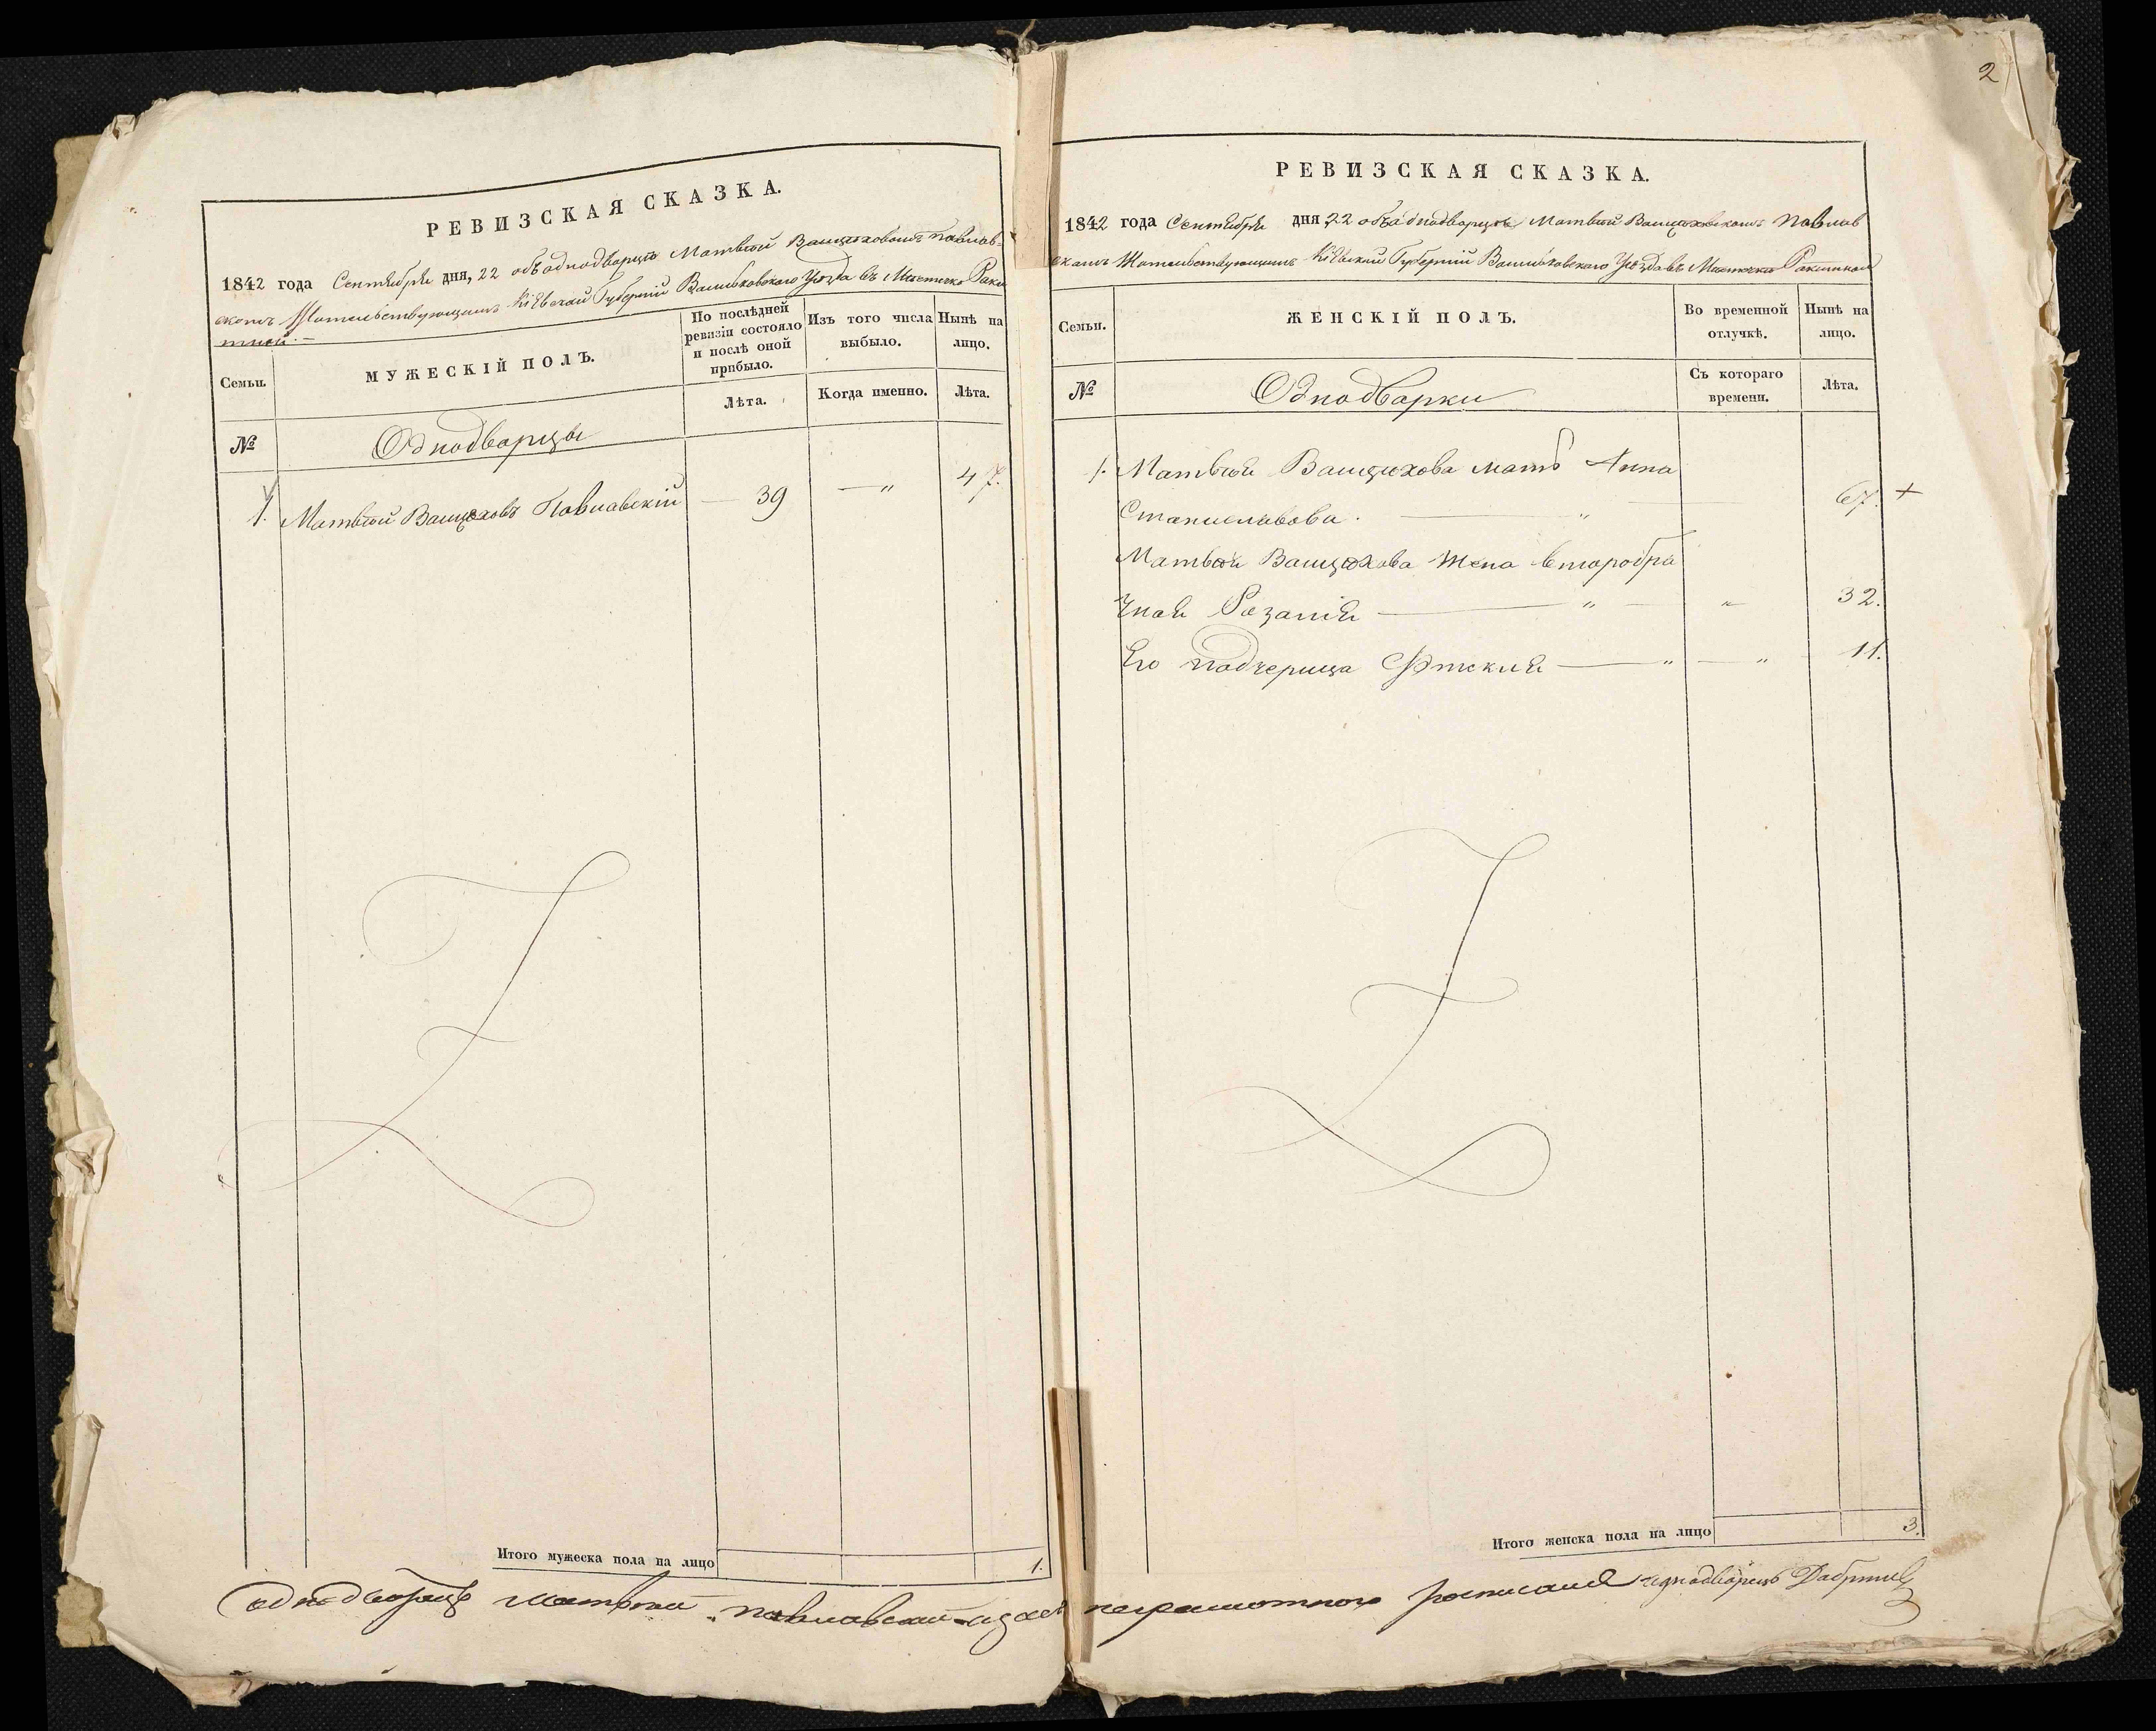 РЕВИЗСКАЯ СКАЗКА.
1842 года Сентября дня, 22 объ однодворцѣ Матвѣй Ващуховомъ Павлов-
скомъ Жительствующимъ Кіевской Губерніи Васильковского Уѣзда въ Мѣстечко Раки
тной. —
Семьи.
МУЖЕСКІЙ ПОЛЪ.
По послѣдней ревизіи состояло и послѣ оной прибыло.
Изъ того числа выбыло.
Нынѣ на лицо.
Лѣта.
Когда именно.
Лѣта.
№
Однодворцы
1. Матвѣй Ващуховъ Павлавскій — 39 — " 47.
Итого мужеска пола на лицо 1.
2
РЕВИЗСКАЯ СКАЗКА.
1842 года Сентября дня 22 объ однодворцѣ Матвѣй Павлов
скомъ Жительствующимъ Кіевской Губерніи Васильковского Уѣзда въ Мѣстечка Ракитной
Семьи.
ЖЕНСКІЙ ПОЛЪ.
Во временной отлучкѣ.
Нынѣ на лицо.
№
Однодворки
Съ котораго времени.
Лѣта.
1. Матвѣя Ващухова мать Анна
Станиславова. — " 67. +
Матвѣя Ващухова Жена второбра
чная Розалія — " — " 32.
Его подчерица — " — " 11.
Итого женска пола на лицо 3.
однодворецъ Матвей Павлавский а за него неграмотного росписался однодворецъ